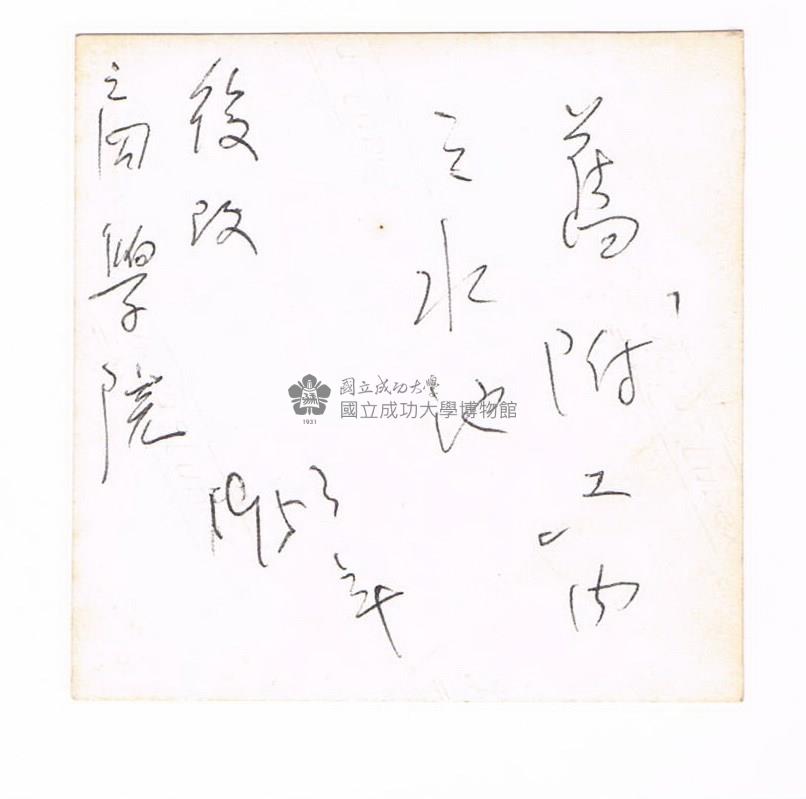 舊「附工」內
之水池
後改
商學院
1953年
國立成功大學
國立成功大學博物館
1931